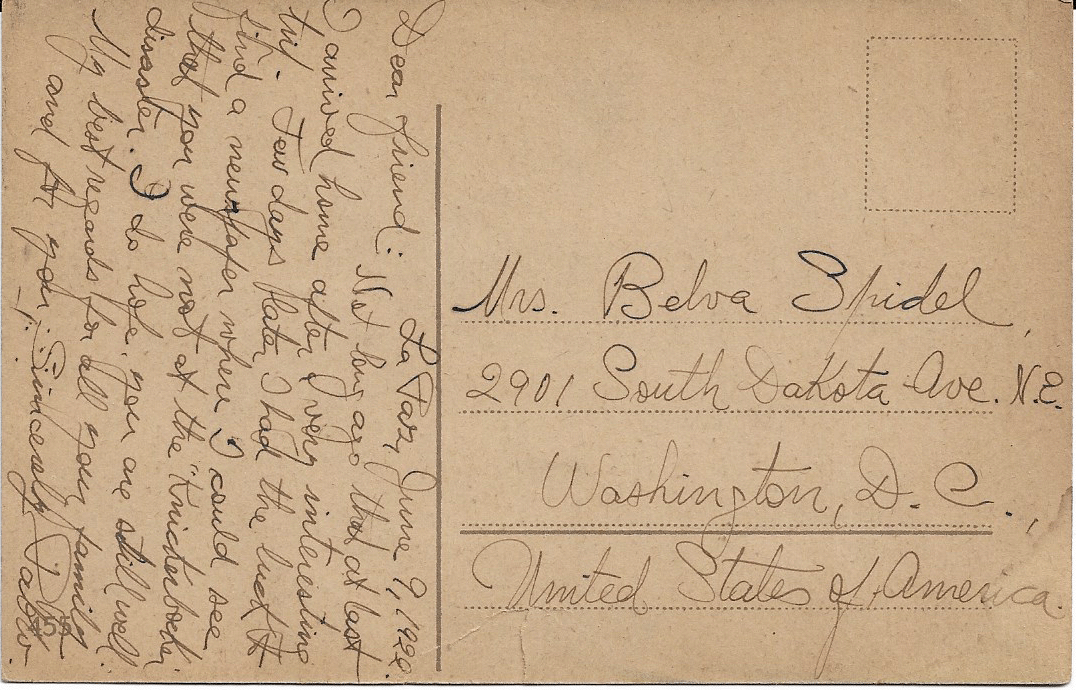 La Paz, June 9, 1922.
Dear friend:
Not long ago that at last
I arrived home after I very interesting
trip. Few days later I had the luck to
find a newspaper where I could see
that you were not at the "Knickerbocker
disaster. I do hope you are still well
My best regards for all your family
and for you,
Sincerely Pablo.
Mrs. Belva Spidel,
2901 South Dakota Ave. N.E.
Washington, D.C.,
United States of America.